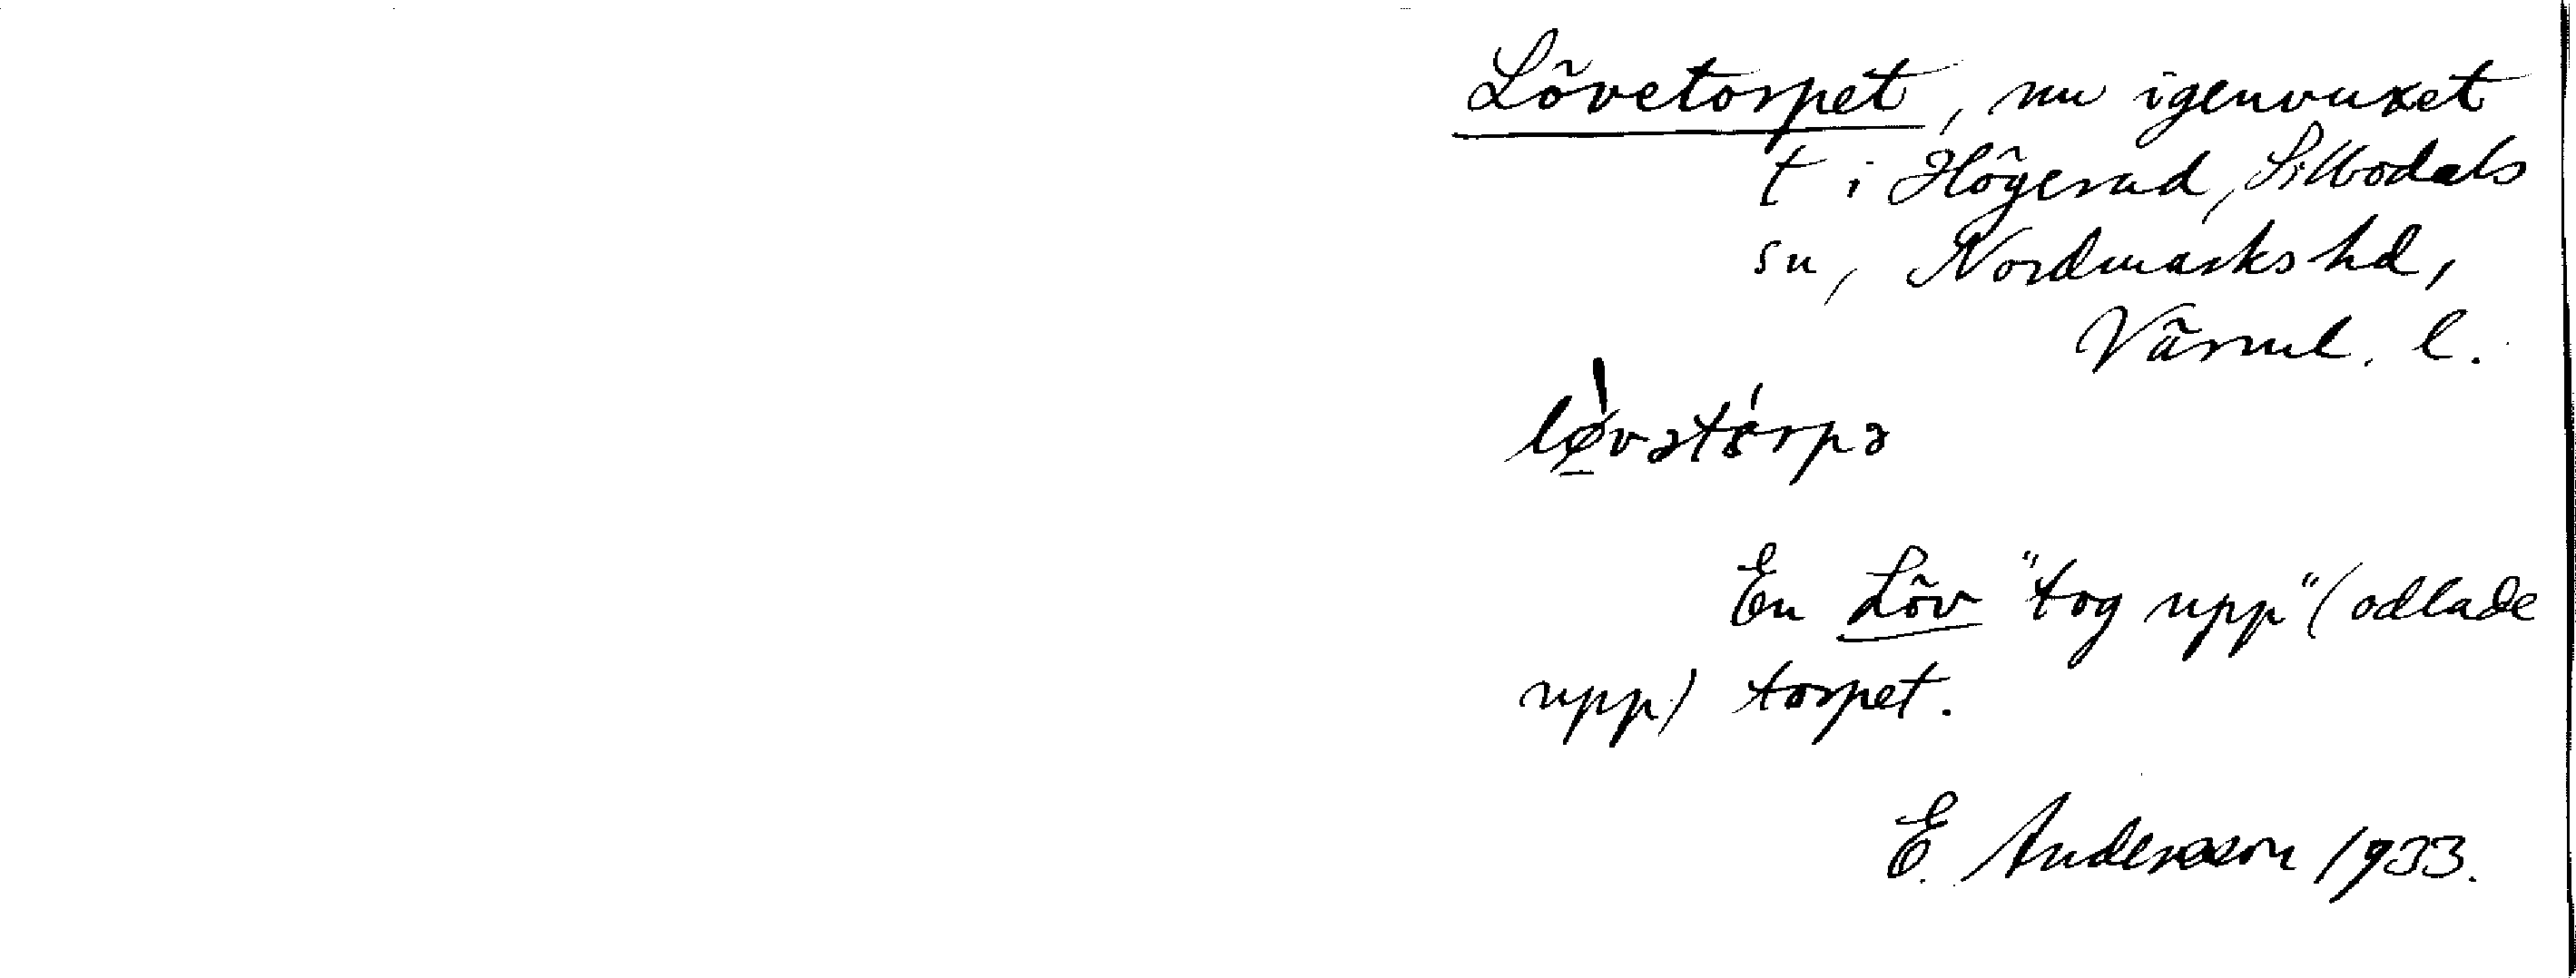 Lövetorpet, nu igenvuxet
t i Högerud, Sillbodals
sn, Nordmarks hd,
Värml. l.
lø̀vətɷ́rpə
En Löv "tog upp" (odlade
upp) torpet.
E. Andersson 1933.